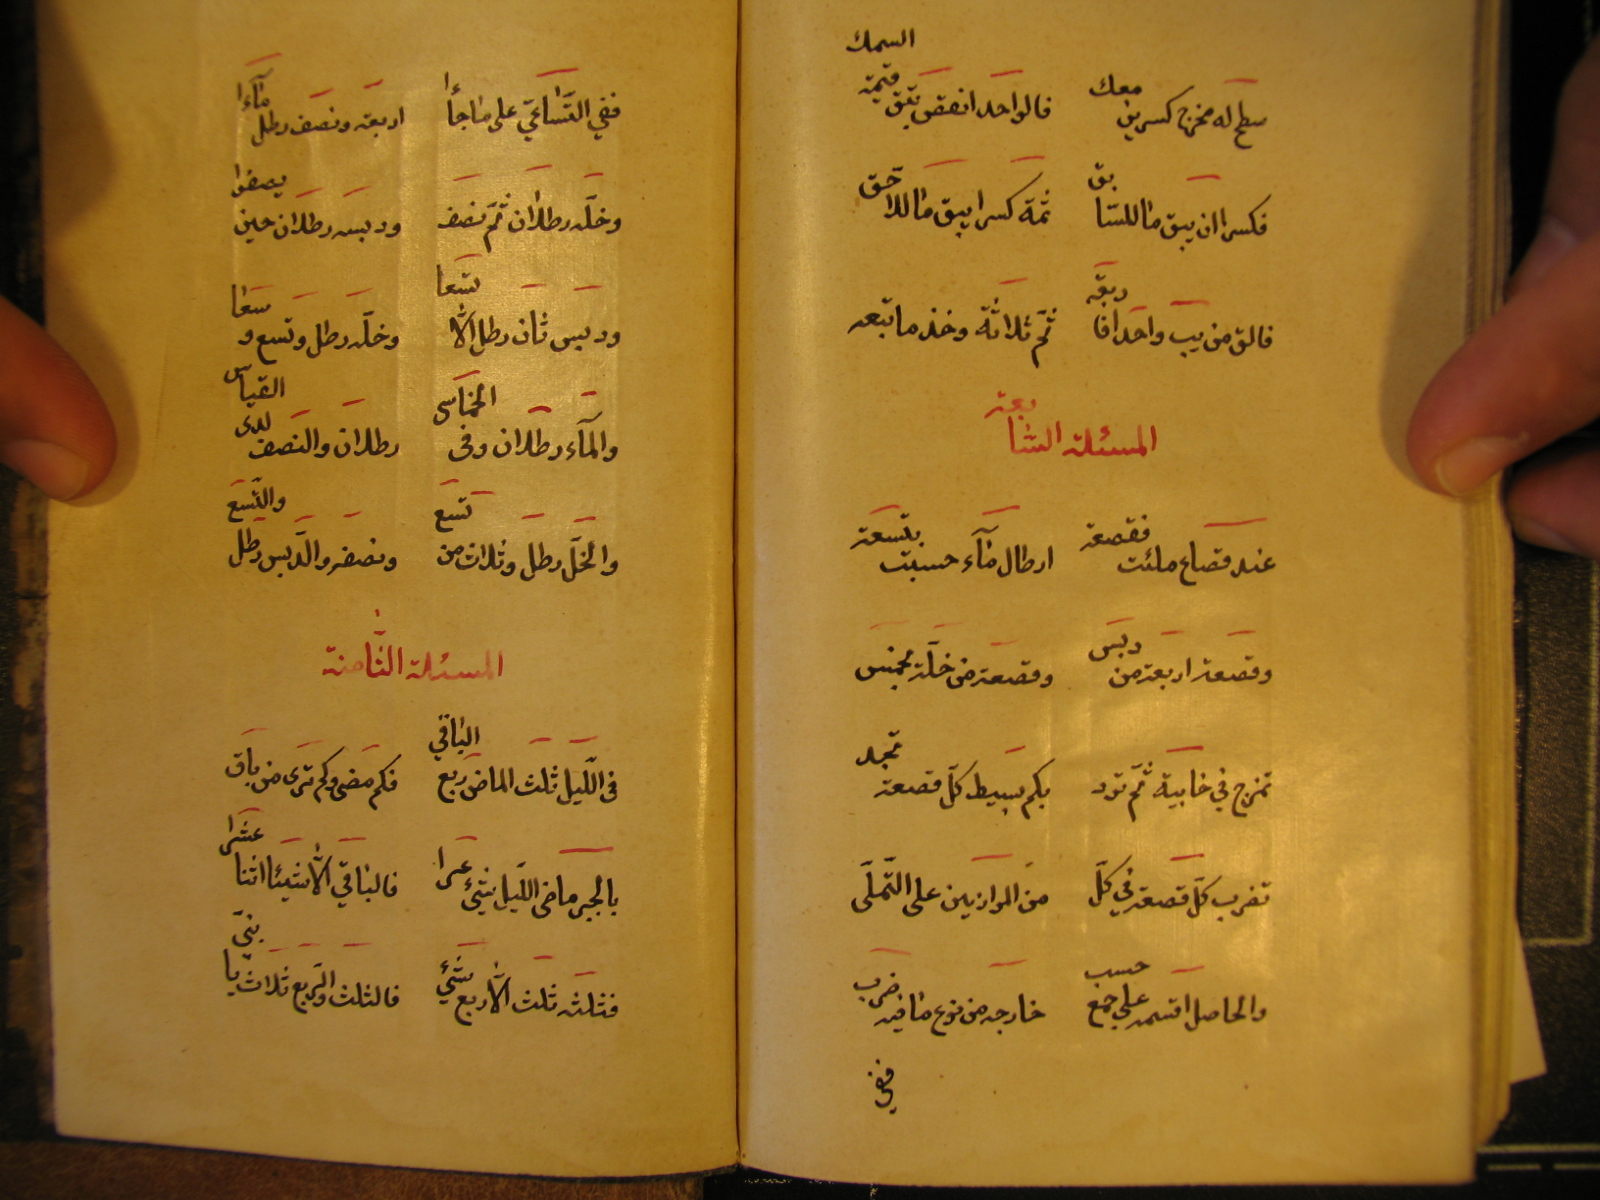 سطح له مخرج كسرين معك
فالواحد انقص تبق قيمة السمك
فكسرا ان يبق ما للسا بق
ثمة كسرا يبق ما للا حق
فالق من يب واحدا فا ربعة
ثم ثلاثة وخذ ما تبعه
المسئلة السابعة
عند قصاع ملئت فقصعة
ارطال ماء حسبت بتسعة
وقصعة اربعة من دبس
وقصعة من خلة بخمس
تمزج في خابية ثم ترد
بكم بسيط كل قصعة تجد
تضرب كل قصعة في كل
من الموازين على التملى
والحاصل اقسمه على جمع حسب
خارجه من نوع ما فيه ضرب
ففي
ففي التساعي على ما جاءا
اربعة ونصف رطل ماءا
وخله رطلان ثم نصف
ودبسه رطلان حين يصفوا
ودبس ثان رطل الا تسعا
وخله رطل وتسع و سعا
والماء رطلان وفي الخماسى
رطلان والنصف لدى القياس
والخل رطل وثلاث من تسع
ونصفه والدبس رطل والتسع
المسئلة الثامنة
في الليل ثلث الماض ربع الباقي
فكم مضى وكم ترى من باق
بالجبر ماضى الليل شئ عرا
فالباقي الا شيئا اثنا عشرا
فثلثه ثلث الا ربع شئي
فالثلث والربع ثلاث يا بني